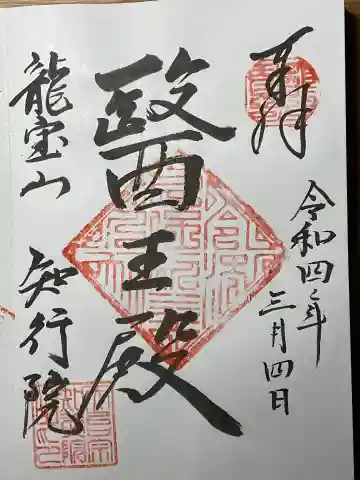 奉拝
令和四年
三月四日
醫王殿
龍宝山
知行院